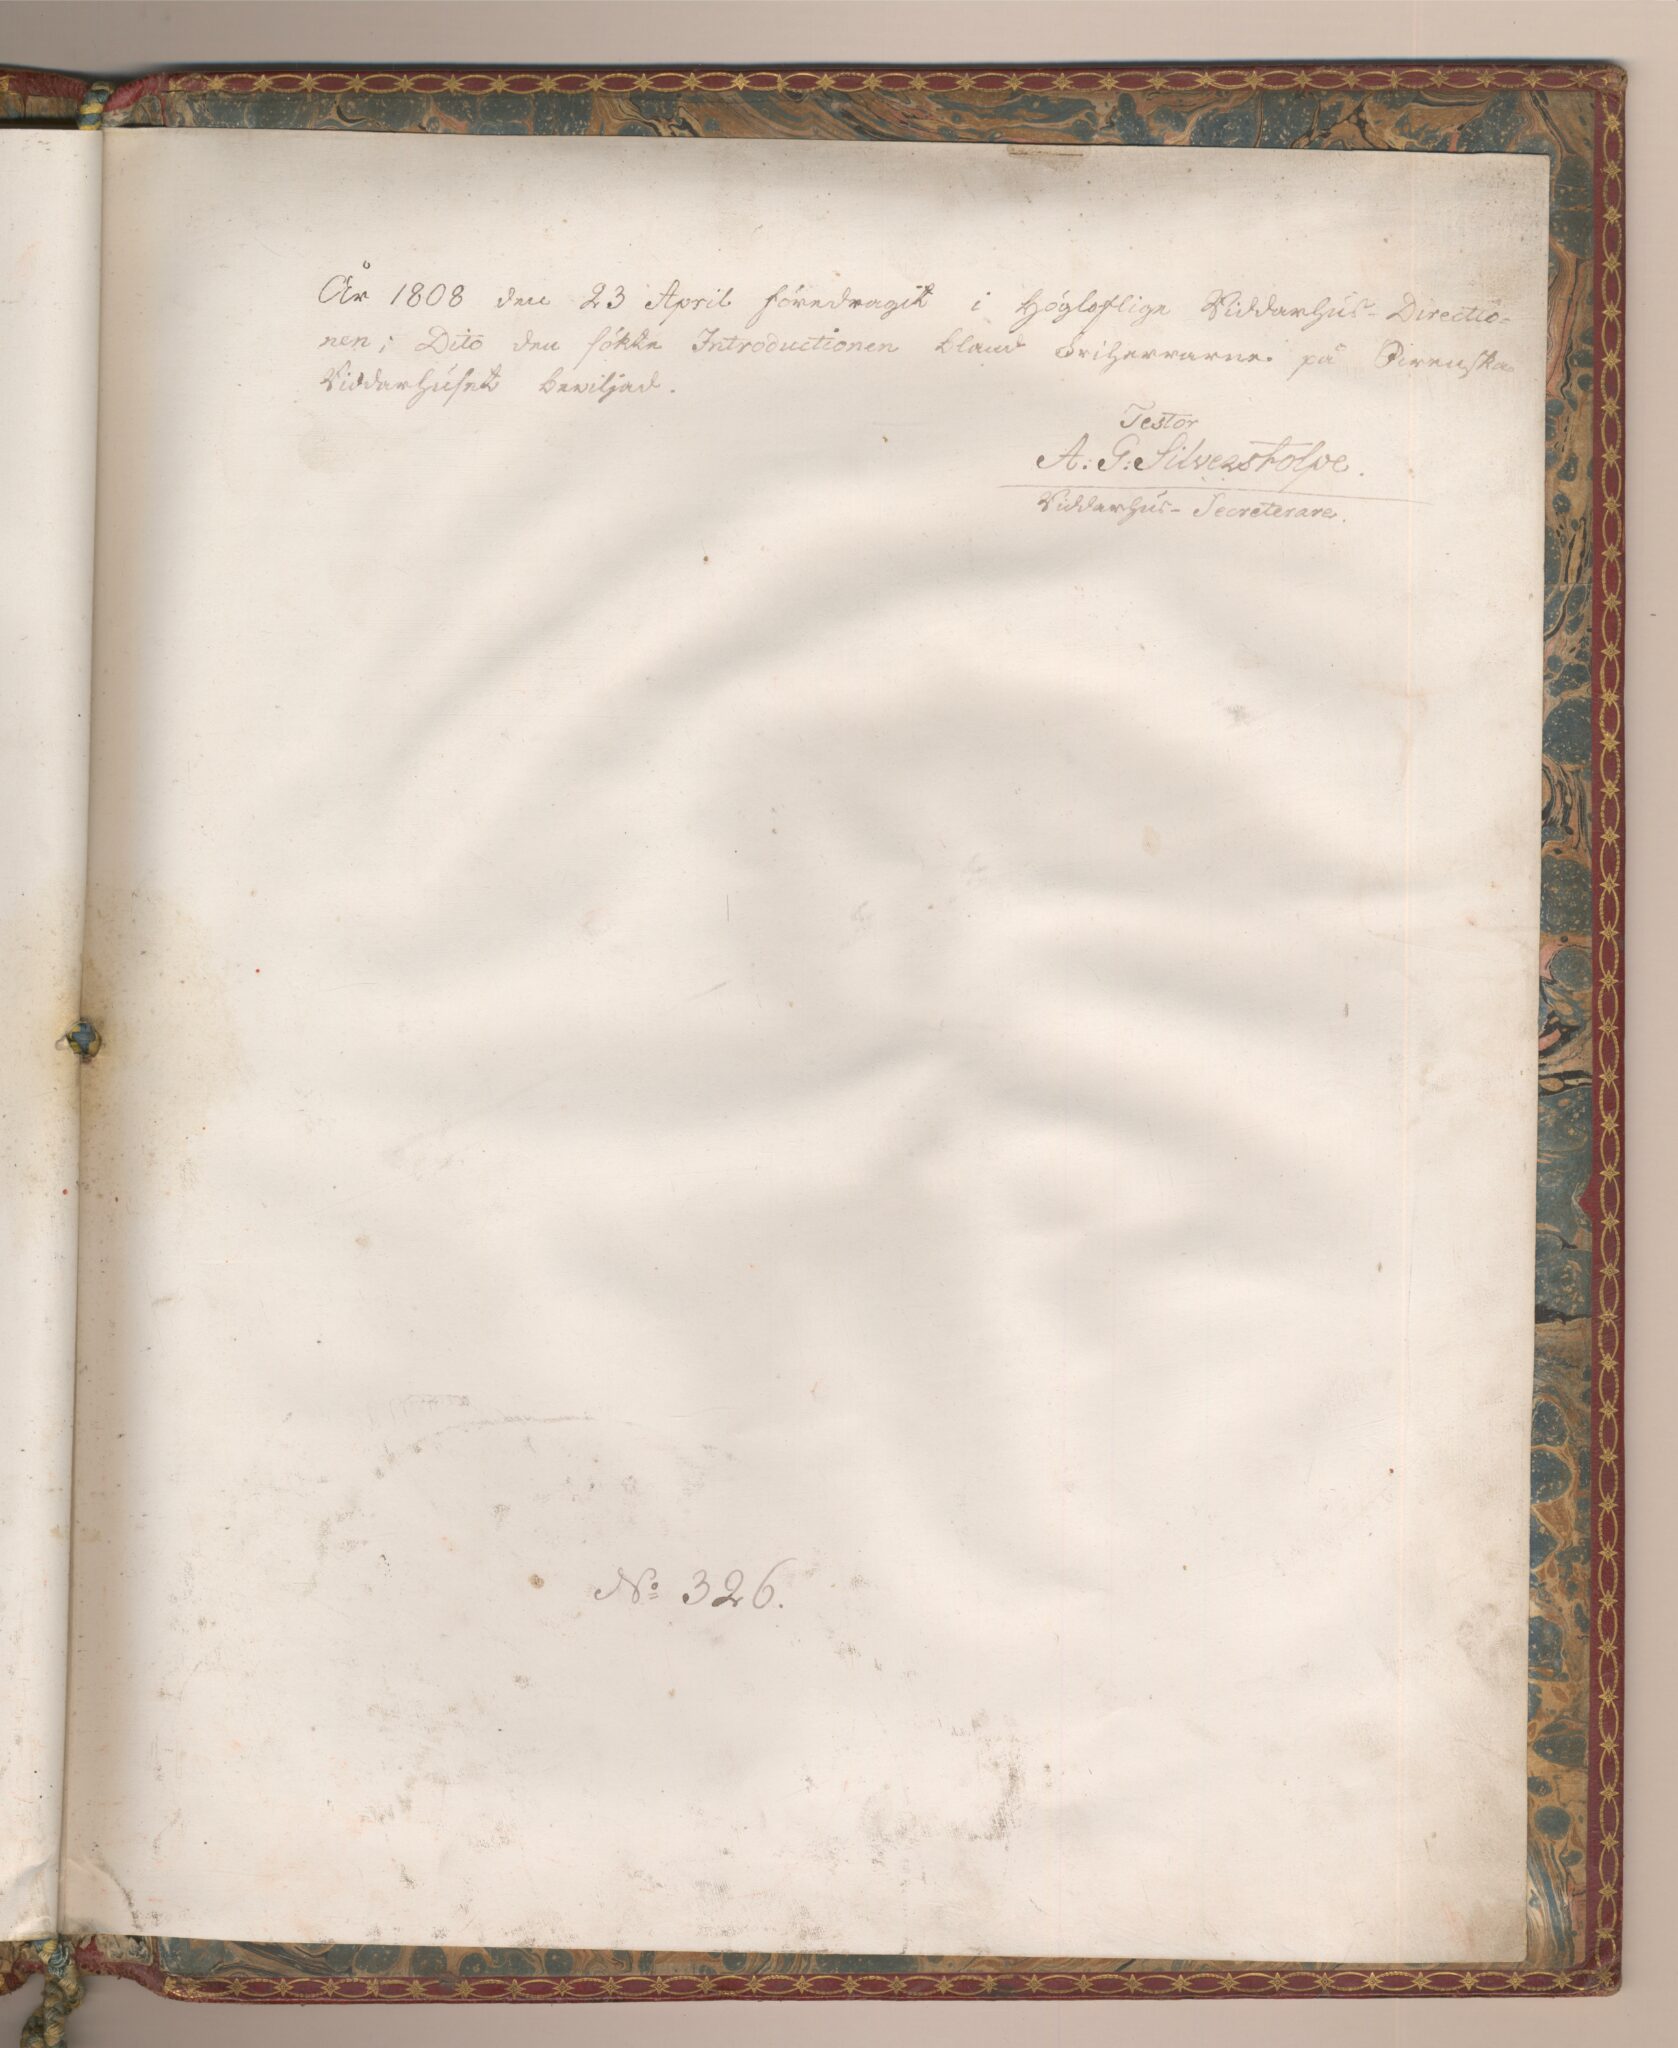 År 1808 den 23 April föredragit i Höglofliga Riddarhus-Directio-
nen; Dito den sökte Introductionen bland Friherrarne på Svenska
Riddarhuset beviljad.
Testor
A: G: Silverstolpe.
Riddarhus-Secreterare.
No 326.